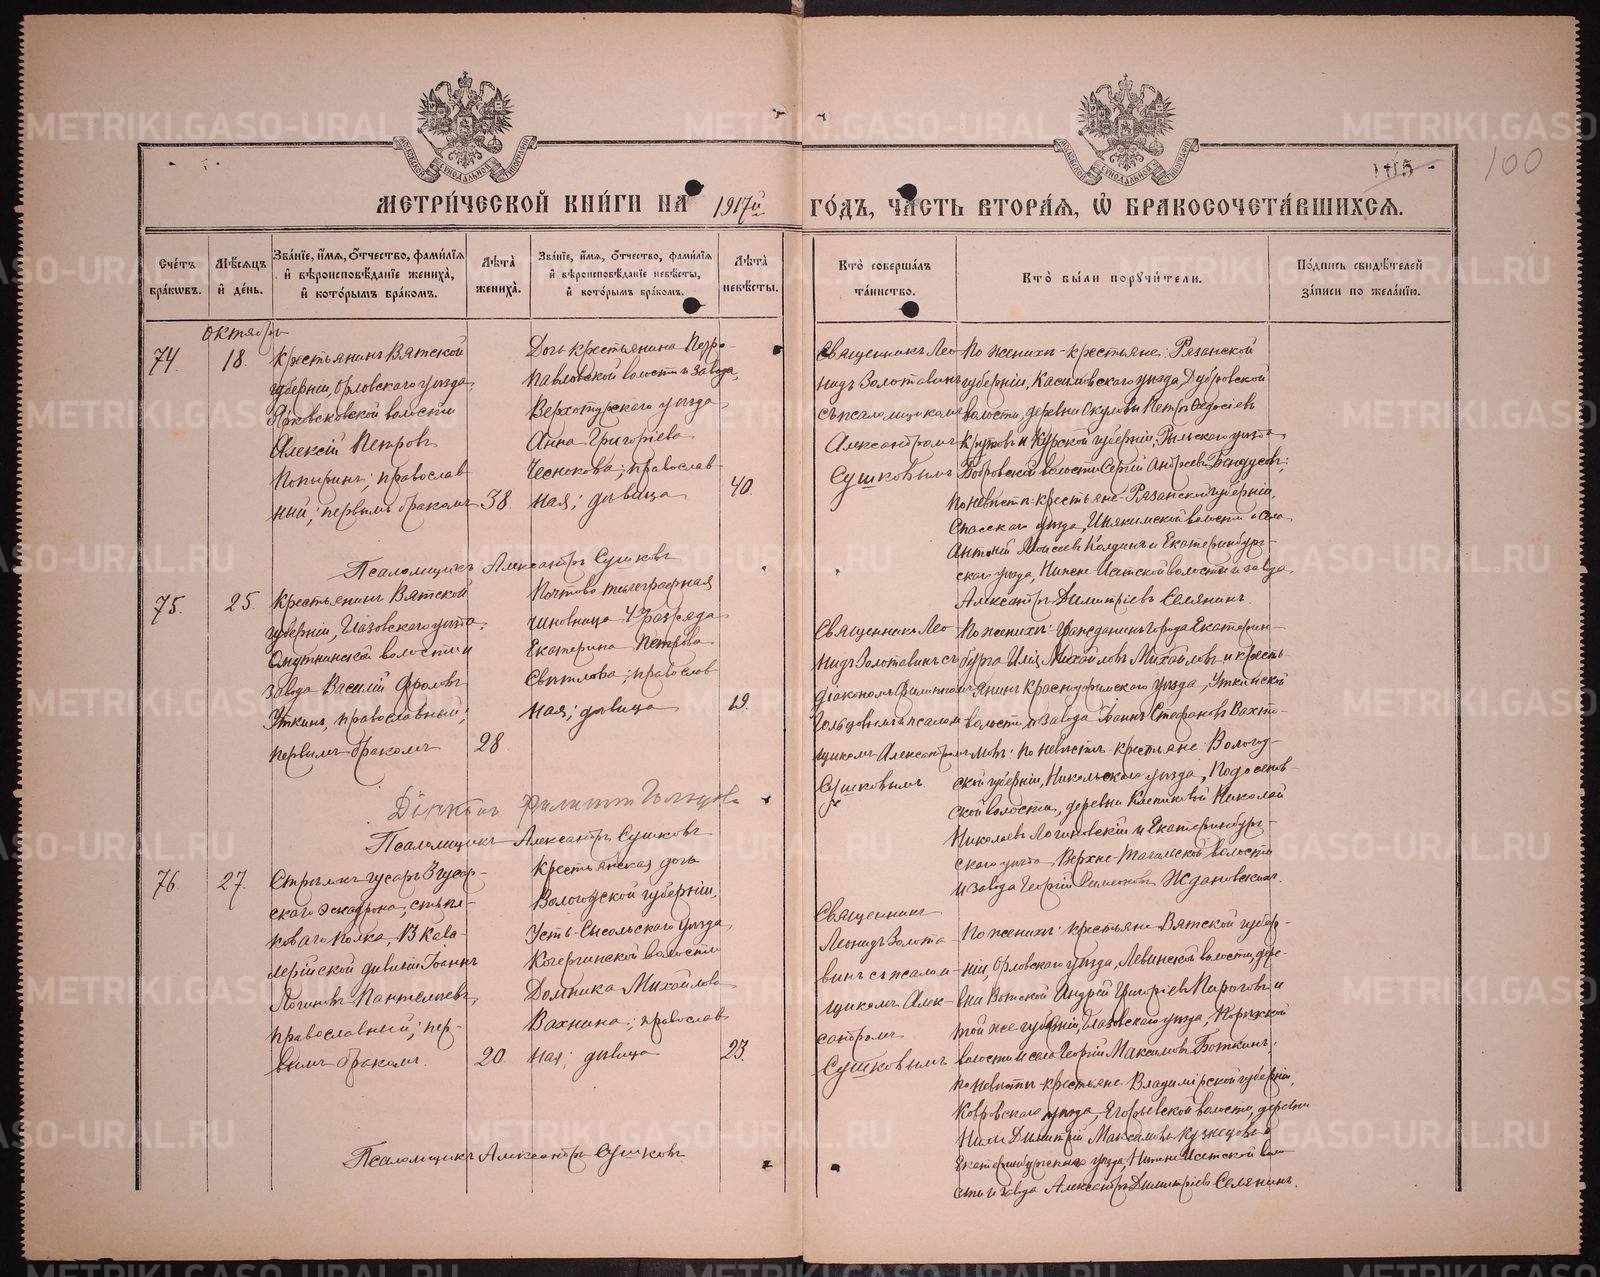 МЕТРИ́ЧЕСКОЙ КНИ́ГИ НА 1917й ГО́ДЪ, ЧА́СТЬ ВТОРА́Я, Ѡ БРАКОСОЧЕТА́ВШИХСЯ.
105
100
Сче́тъ бра́кѡвъ.
Мѣ́сяцъ и де́нь.
Зва́нїе, и́мя, ѻ́тчество, фами́лїя
и вѣроисповѣ́данїе жениха̀,
и кото́рымъ бра́комъ.
Лѣ́та жениха̀.
Зва́нїе, и́мя, ѻ́тчество, фами́лїя
и вѣроисповѣ́данїе невѣ́сты,
и кото́рымъ бра́комъ.
Лѣ́та невѣ́сты.
Кто̀ соверша́лъ
та́инство.
Кто̀ бы́ли порꙋчи́тели.
По́дпись свидѣ́телей
за́писи по жела́нїю.
Октябрь
74.
18.
Крестьянинъ Вятской
губерніи, Орловскаго уѣзда,
волости
Алексій Петровъ
Попыринъ; православ
ный; первымъ бракомъ
38.
Дочь крестьянина Петро-
павловской волости и завода,
Верхотурскаго уѣзда,
Анна Григоріева
Чеснокова; православ-
ная; дѣвица
40.
Священникъ Лео
нидъ Золотавинъ
съ псаломщикомъ
Александромъ
Сушковымъ
По женихѣ - крестьяне: Рязанской
губерніи, Касимовскаго уѣзда, Дубровской
волости, деревни Окуловы Петръ Ѳедосіевъ
Крутовъ и Курской губерніи, Рыльскаго уѣзда,
Бобровской волости Сергій Андреевъ
по невѣстѣ: крестьяне - Рязанской губерніи,
Спасскаго уѣзда, Ижевской волости и села
Антоній Моисеевъ Колдинъ и Екатеринбург-
скаго уѣзда, Нижне Исетской волости и завода
Александръ Димитріевъ Селянинъ.
Псаломщикъ Александръ Сушковъ
75.
25.
Крестьянинъ Вятской
губерніи, Глазовскаго уѣзда,
Омутнинской волости и
завода Василій Фроловъ
Уткинъ, православный;
первымъ бракомъ
28
Почтово телеграфная
чиновница 4го разряда
Екатерина Петрова
Свѣтлова; православ
ная; дѣвица
19.
Священникъ Лео
нидъ Золотавинъ съ
діакономъ Филиппомъ
Гольцовымъ и псалом
щикомъ Александромъ
Сушковымъ.
По женихѣ: гражданинъ города Екатерин-
бурга Илія Михайловъ Михайловъ и кресть-
янинъ Красноуфимскаго уѣзда, Уткинской
волости, и завода Іоаннъ Стефановъ Вахто-
мовъ: по невѣстѣ - крестьяне Вологод-
ской губерніи, Никольскаго уѣзда, Подосинов-
ской волости, деревни Николай
Николаевъ Логиновскій и Екатеринбург-
скаго уѣзда Верхне-Тагильской волости
и завода Георгій Ждановскихъ.
Діаконъ Филиппъ Гольцовъ
Псаломщикъ Александръ Сушковъ
76
27.
Стрѣлокъ гусаръ 3 гусар-
скаго эскадрона, стрѣл-
коваго полка, 13 кава-
лерійской дивизіи Іоаннъ
Логиновъ Пантелеевъ,
православный; пер-
вымъ бракомъ.
20
Крестьянская дочь
Вологодской губерніи,
Усть-Сысольскаго уѣзда
волости
Домника Михайлова
Вахнина; православ
ная; дѣвица
23.
Священникъ
Леонидъ Золота
винъ съ псалом
щикомъ Алек-
сандромъ
Сушковымъ
По женихѣ: крестьяне Вятской губер-
ніи, Орловскаго уѣзда, Левинской волости, дере-
вни Андрей Григоріевъ Пироговъ и
той же губерніи, Глазовскаго уѣзда,
волости и села Георгій Максимовъ Боткинъ;
по невѣстѣ - крестьяне Владимірской губерніи,
Ковровскаго уѣзда, Егорьевской волости, деревни
Димитрій Максимовъ Кузнецовъ и
Екатеринбургскаго уѣзда, Нижне Исетской воло-
сти и завода Александръ Димитріевъ Селянинъ.
Псаломщикъ Александръ Сушковъ
METRIKI.GASO-URAL.RU